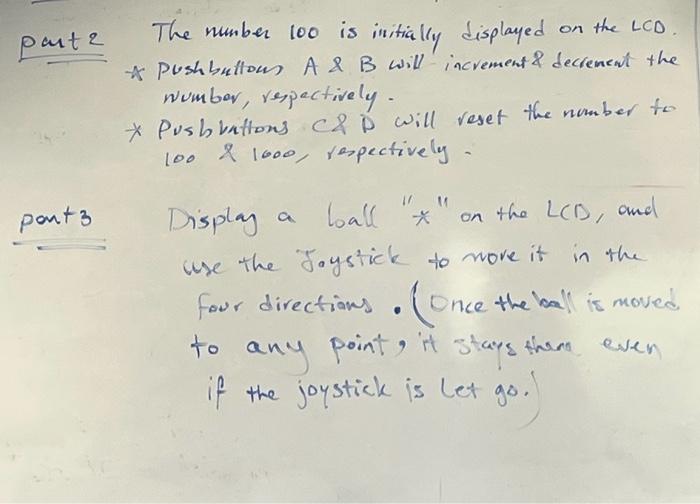 part 2 The number 100 is initially displayed on the LCD.
* Pushbuttons A & B will increment & decrement the
number, respectively.
* Pushbuttons C & D will reset the number to
100 & 1000, respectively.
part 3 Display a ball "*" on the LCD, and
use the Joystick to move it in the
four directions. (Once the ball is moved
to any point, it stays there even
if the joystick is let go.)